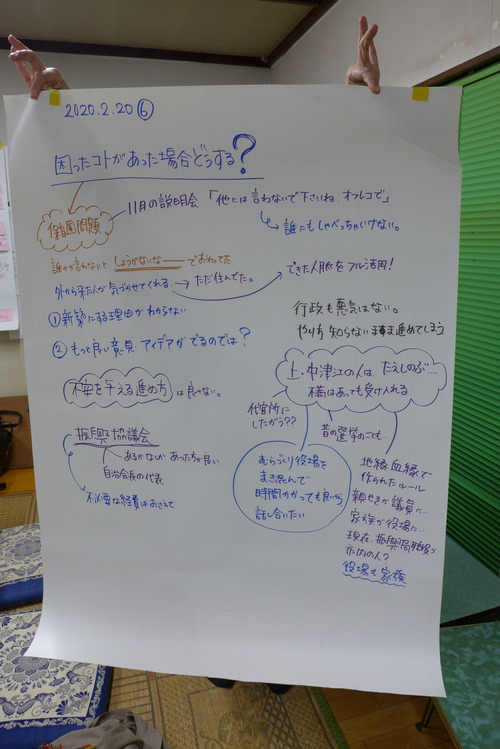 2020.2.20 ⑥
困ったコトがあった場合どうする?
11月の説明会 「他には言わないで下さいね、オフレコで」
誰にもしゃべっちゃいけない。
誰かが言わないと しょうがないな でおわってた
外から来た人が気づかせてくれる
ただ住んでた。
できた人脈をフル活用!
①新築にする理由がわからない
②もっと良い意見 アイデアがでるのでは?
行政も悪気はない。
やり方 知らないまま進めてしまう
不安を与える進め方 は良くない。
上・中津江の人は、たえしのぶ…
不満はあっても受け入れる
代官所に
したがう??
昔の選挙のことも…
振興協議会
あるかないか あった方が良い
自治会長の代表
不必要な経費はおさえて
むらづくり役場を
まき混んで
時間かかっても良いから
話し合いたい
地縁血縁で
作られたルール
親せきが議員に…
家族が役場に…
現在、振興局職員が
市内の人?
役場も家族